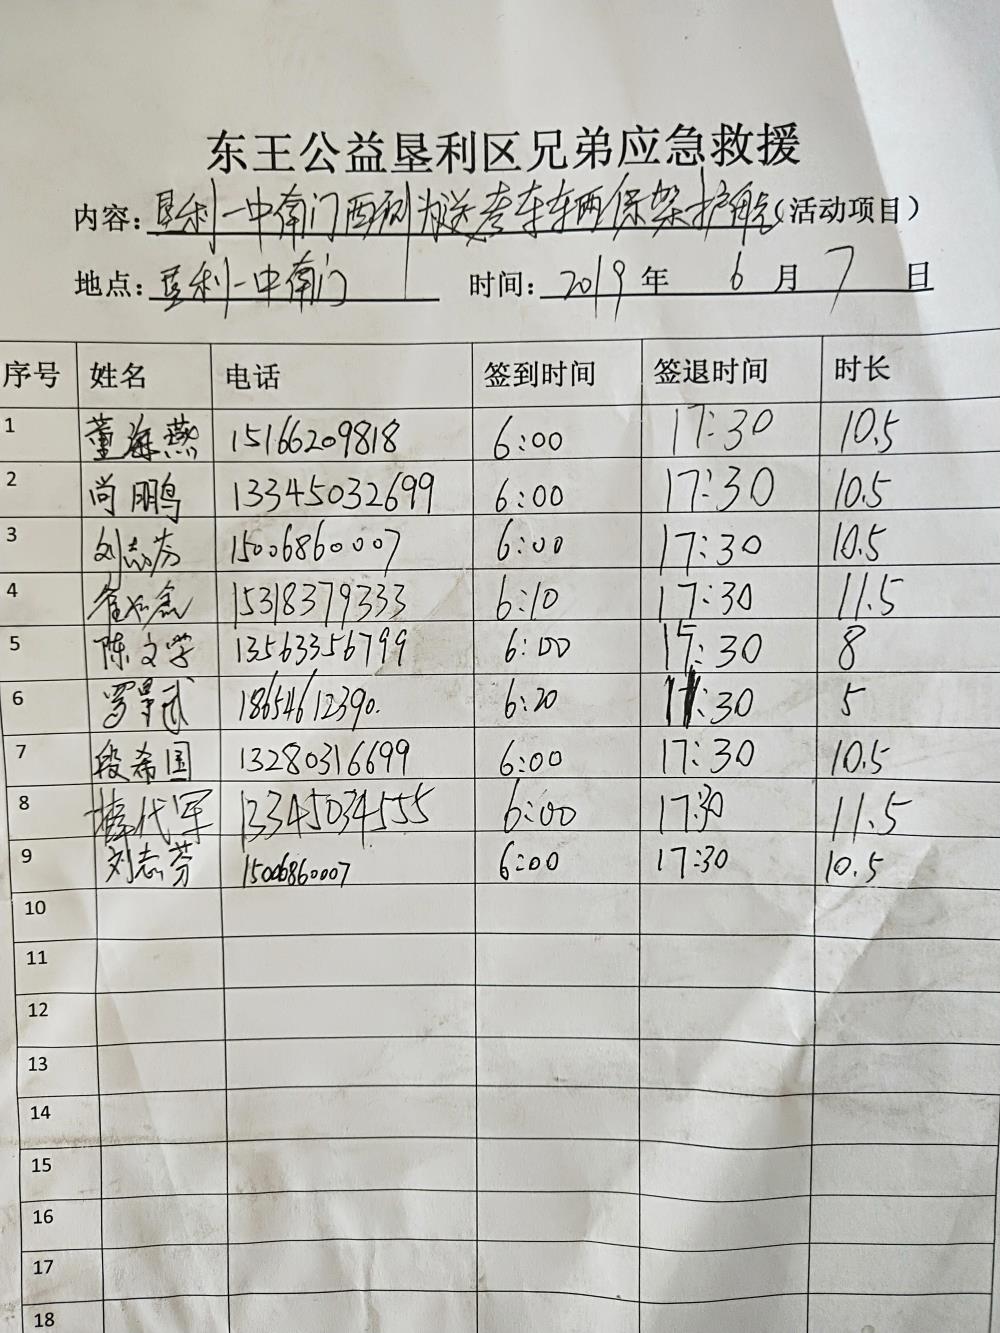 东王公益垦利区兄弟应急救援
内容：垦利一中南门西侧为送考车车辆保架护航（活动项目）
地点：垦利一中南门 时间：2019年6月7日
序号 姓名 电话 签到时间 签退时间 时长
1 董海燕 15166209818 6:00 17:30 10.5
2 尚鹏 13345032699 6:00 17:30 10.5
3 刘志芬 15006860007 6:00 17:30 10.5
4 15318379333 6:10 17:30 11.5
5 陈文学 13563356799 6:00 :30 8
6 罗 武 18654612390. 6:20 :30 5
7 段希国 13280316699 6:00 17:30 10.5
8 代军 13345034555 6:00 17:30 11.5
9 刘志芬 15006860007 6:00 17:30 10.5
10
11
12
13
14
15
16
17
18